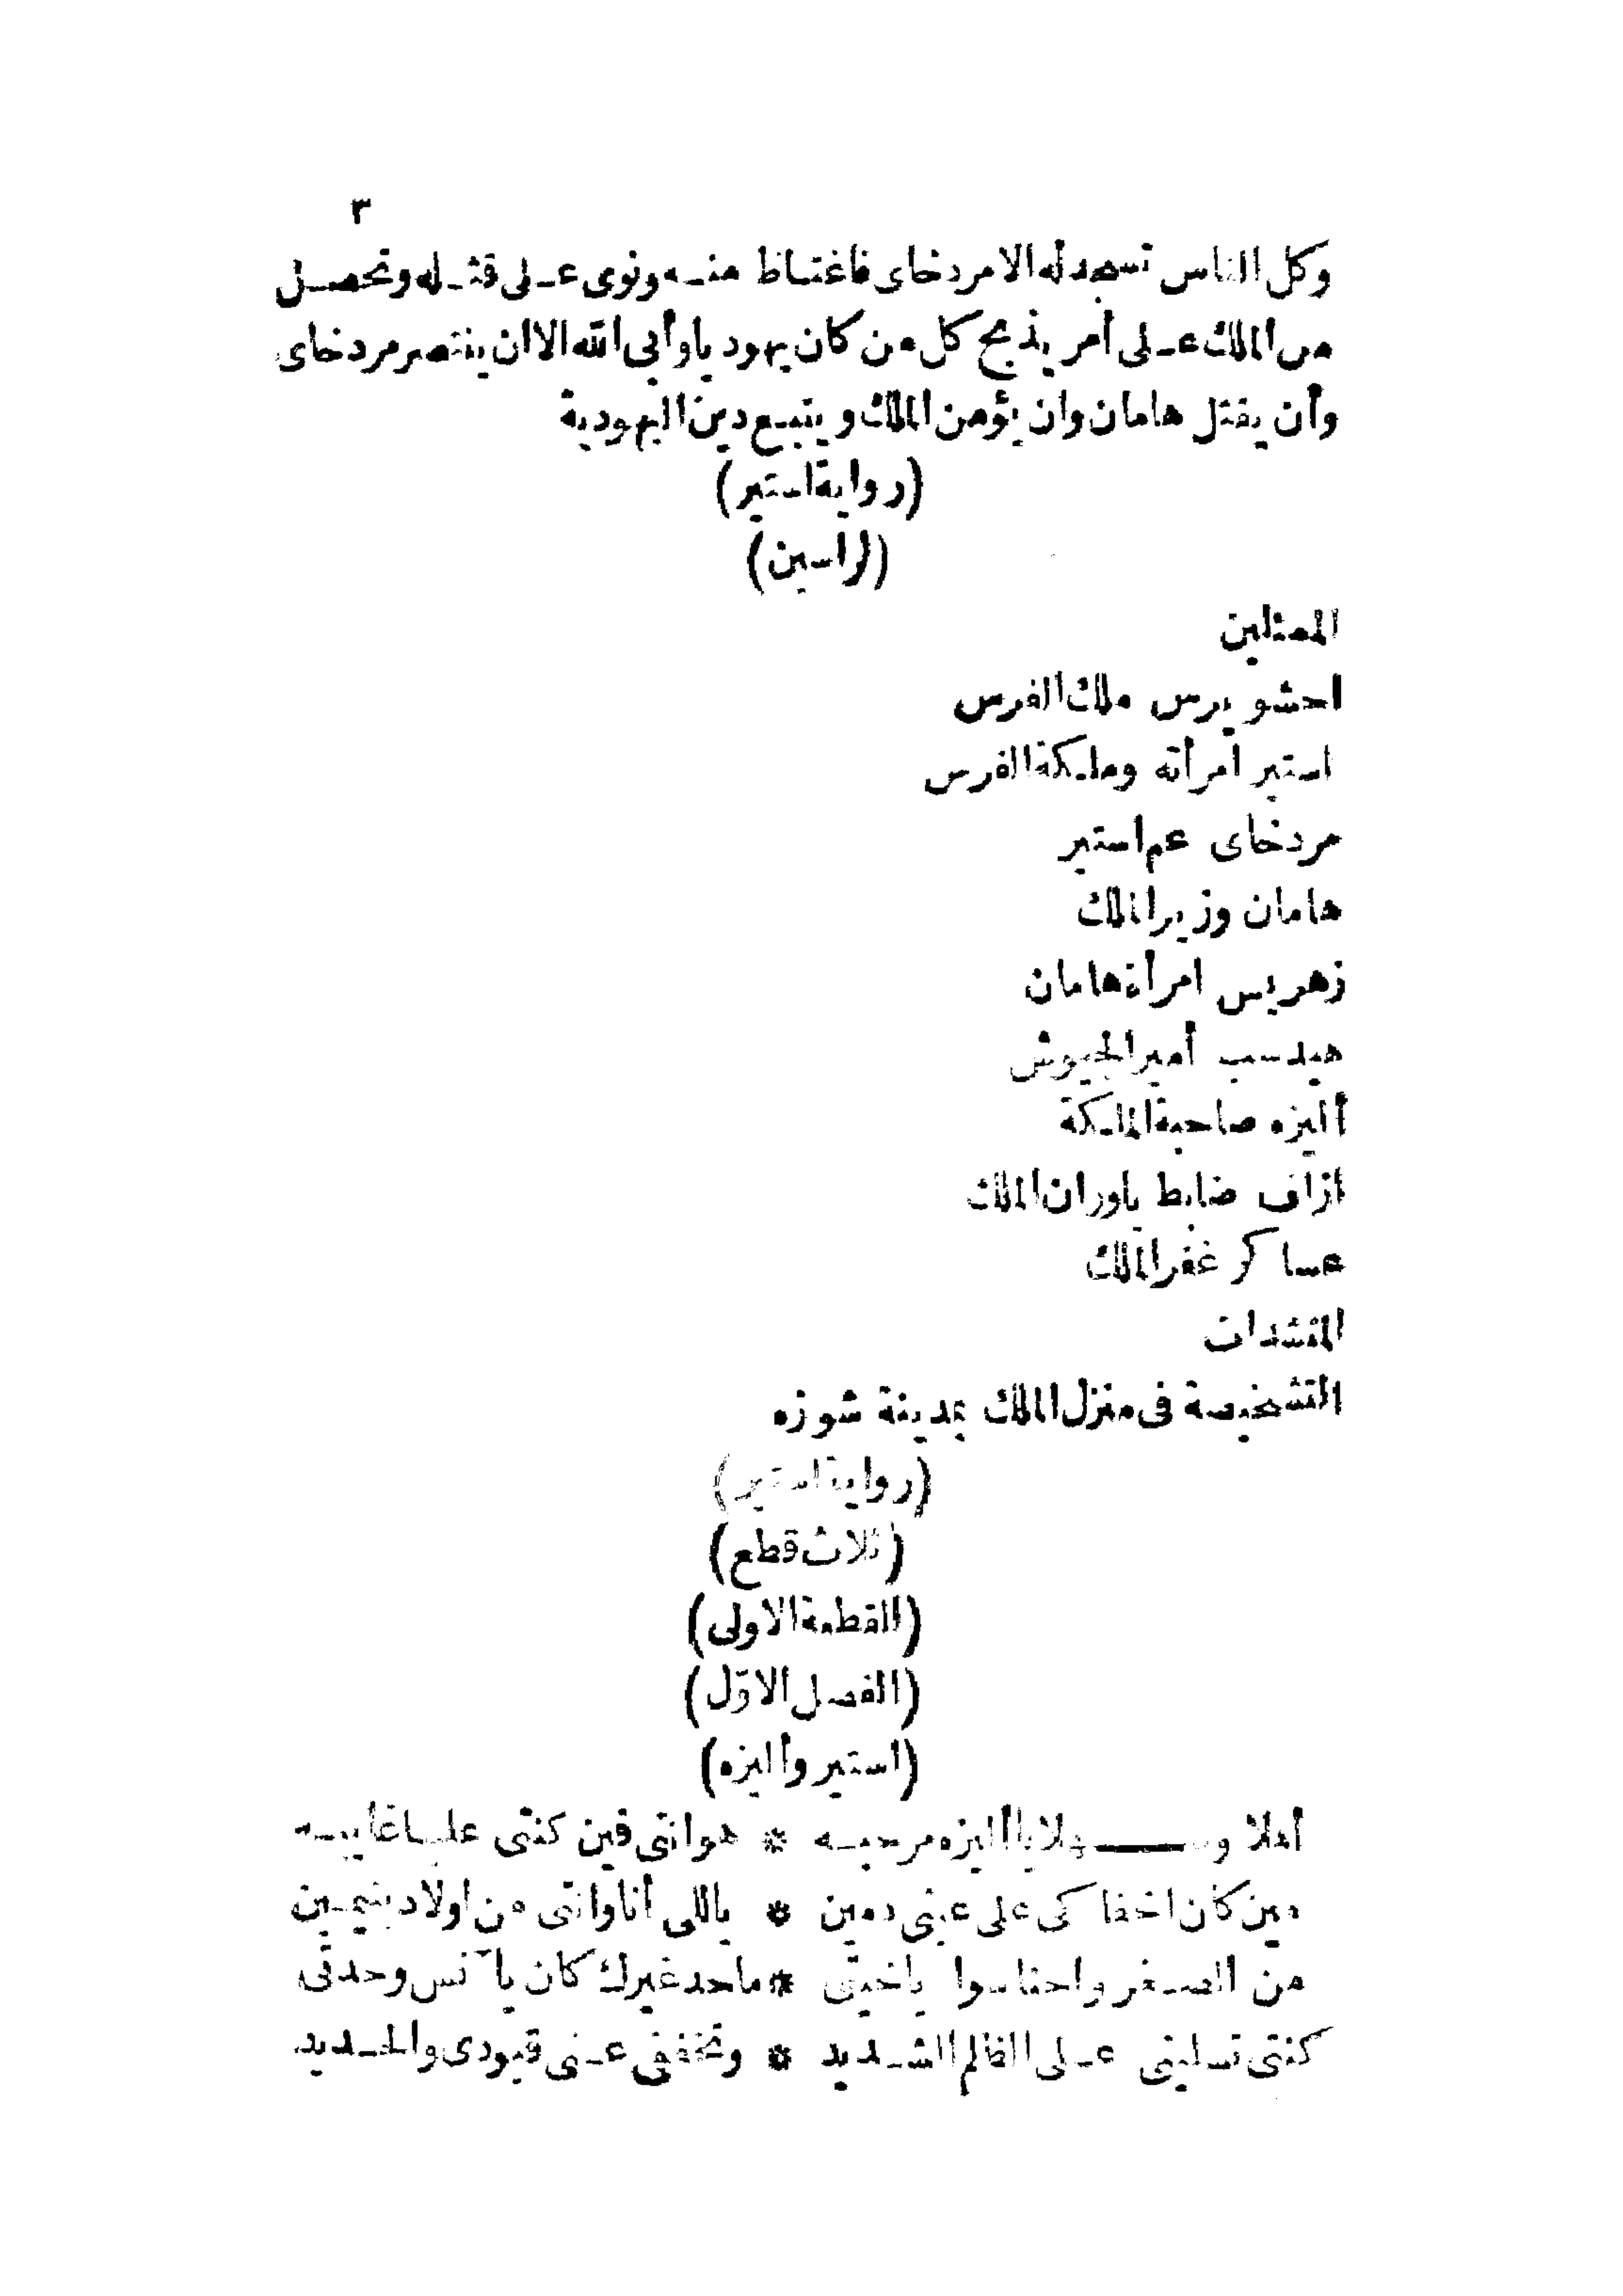 ٣
وكل الناس تسجد له الا مردخاى فاغتاظ منه ونوى على قتله وتحصل
من الملك على أمر يذبح كل من كان يهوديا وأبى الله الا ان ينتصر مردخاى
وأن يقتل هامان وان يؤمن الملك ويتبع دين اليهودية
(رواية استير)
(لراسين)
الممثلين
احشويرس ملك الفرس
استير امرأته وملكة الفرس
مردخاى عم استير
هامان وزير الملك
زهريس امرأة هامان
هيدسب أمير الجيوش
أليزه صاحبة الملكة
ازاف ضابط ياوران الملك
عساكر غفر الملك
المنشدات
التشخيصة فى منزل الملك بمدينة شوزه
(رواية استير)
(ثلاث قطع)
(القطعة الاولى)
(الفصل الاوّل)
(استير وأليزه)
أهلا وسهلا يا أليزه مرحبه * هوانتى فين كنتى عليا غايبه
مين كان اخفاكى على عينى دمين * ياللى أنا وانتى من اولاد بنيمين
من الصغر واحنا سوا ياخيتى * ماحد غيرك كان يآنس وحدتى
كنتى تسلينى على الظلم الشديد * وتخففى عنى قيودى والحديد